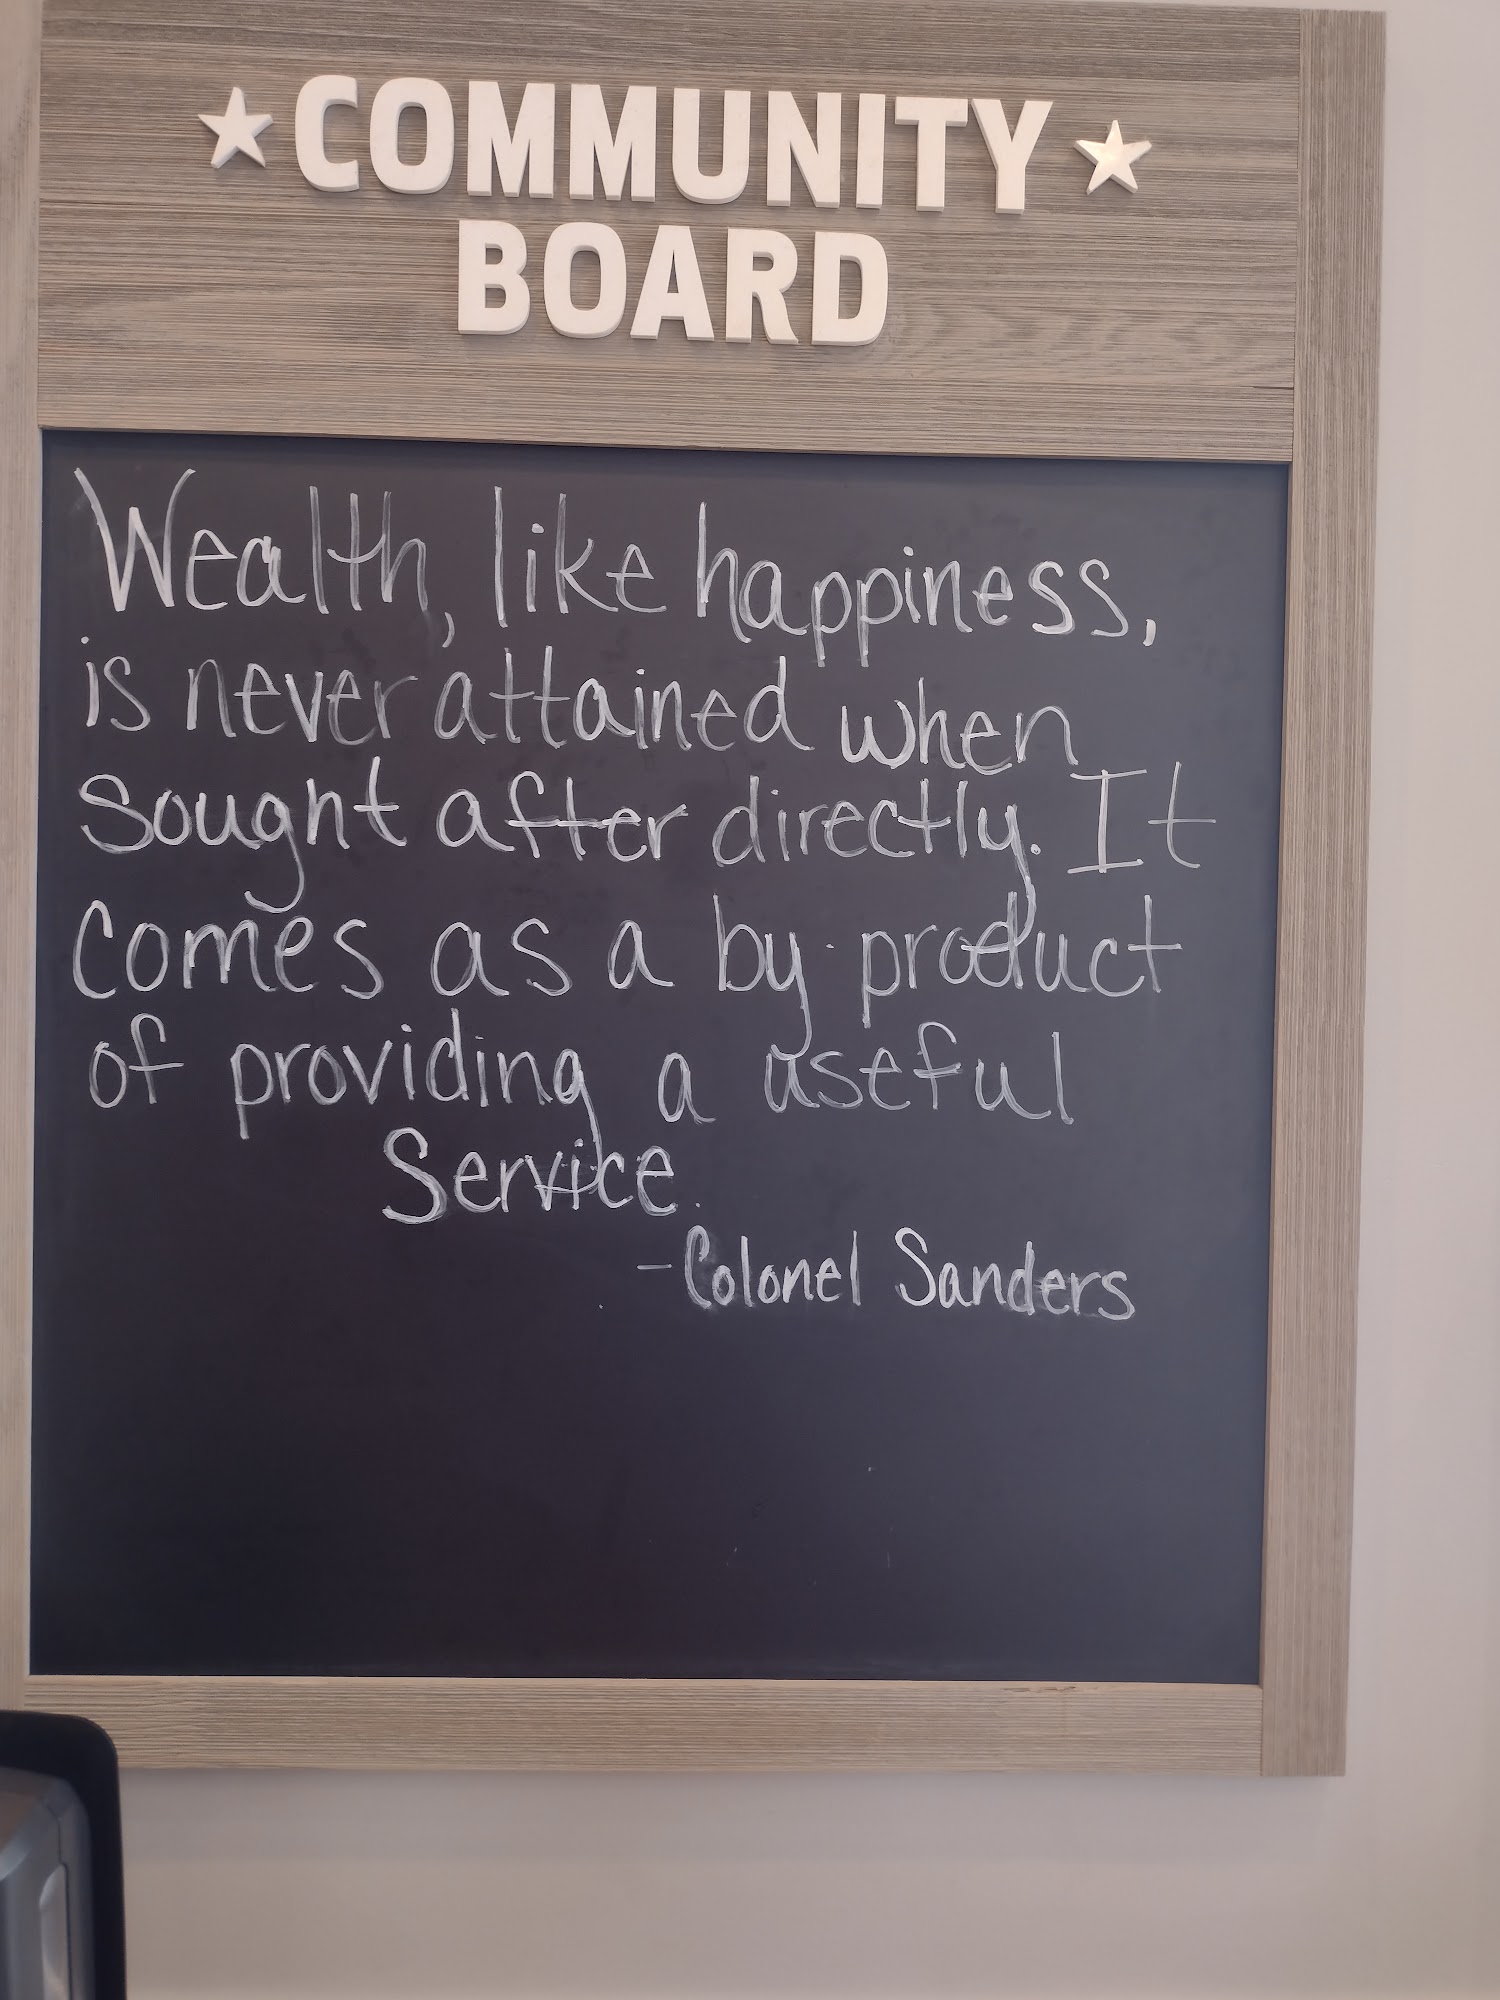 COMMUNITY
BOARD
Wealth, like happiness,
is never attained when
Sought after directly. It
Comes as a by-product
of providing a useful
Service.
-Colonel Sanders